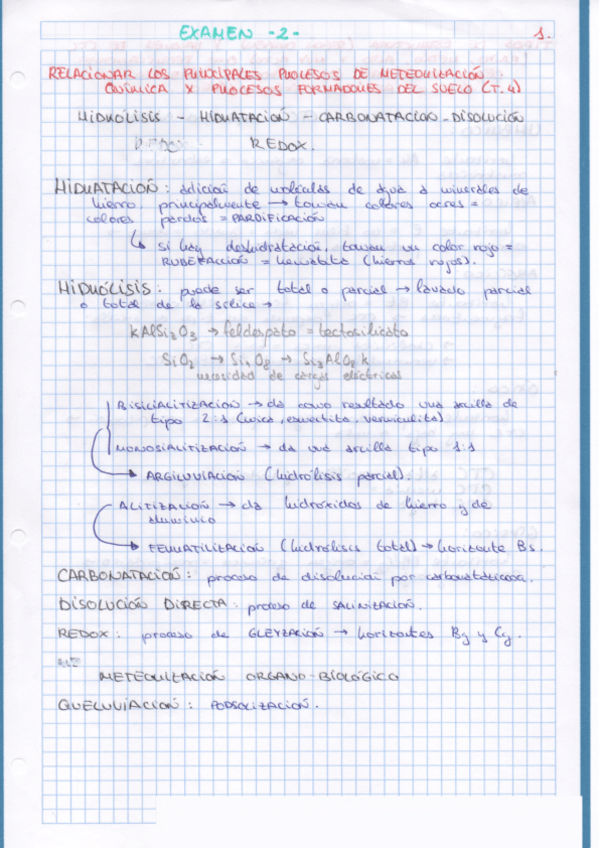 EXAMEN -2-
1.
RELACIONAR LOS PRINCIPALES PROCESOS DE METEORIZACIÓN
QUÍMICA X PROCESOS FORMADORES DEL SUELO (T.4)
HIDRÓLISIS - HIDRATACIÓN - CARBONATACIÓN - DISOLUCIÓN
REDOX.
HIDRATACIÓN: adición de moléculas de agua a minerales de
hierro, principalmente → toman colores ocres =
colores pardos = PARDIFICACIÓN
↳ si hay deshidratación, toman un color rojo =
RUBEFACCIÓN = hematita (hierros rojos).
HIDRÓLISIS: puede ser total o parcial → lavado parcial
o total de la sílice →
KAlSi2O3 → feldespato = tectosilicato
SiO2 → Si4O8 → Si3AlO8K
necesidad de cargas eléctricas
BISIALITIZACIÓN → da como resultado una arcilla de
tipo 2:1 (mica, esmectita, vermiculita)
MONOSIALITIZACIÓN → da una arcilla tipo 1:1
→ ARGILUVIACIÓN (hidrólisis parcial).
ALITIZACIÓN → da hidróxidos de hierro y de
aluminio
→ FERRATILIZACIÓN (hidrólisis total) → horizonte Bs.
CARBONATACIÓN: proceso de disolución por
DISOLUCIÓN DIRECTA: proceso de SALINIZACIÓN.
REDOX: proceso de GLEYZACIÓN → horizontes Bg y Cg.
METEORIZACIÓN ORGANO-BIOLÓGICO
QUELUVIACIÓN: PODSOLIZACIÓN.